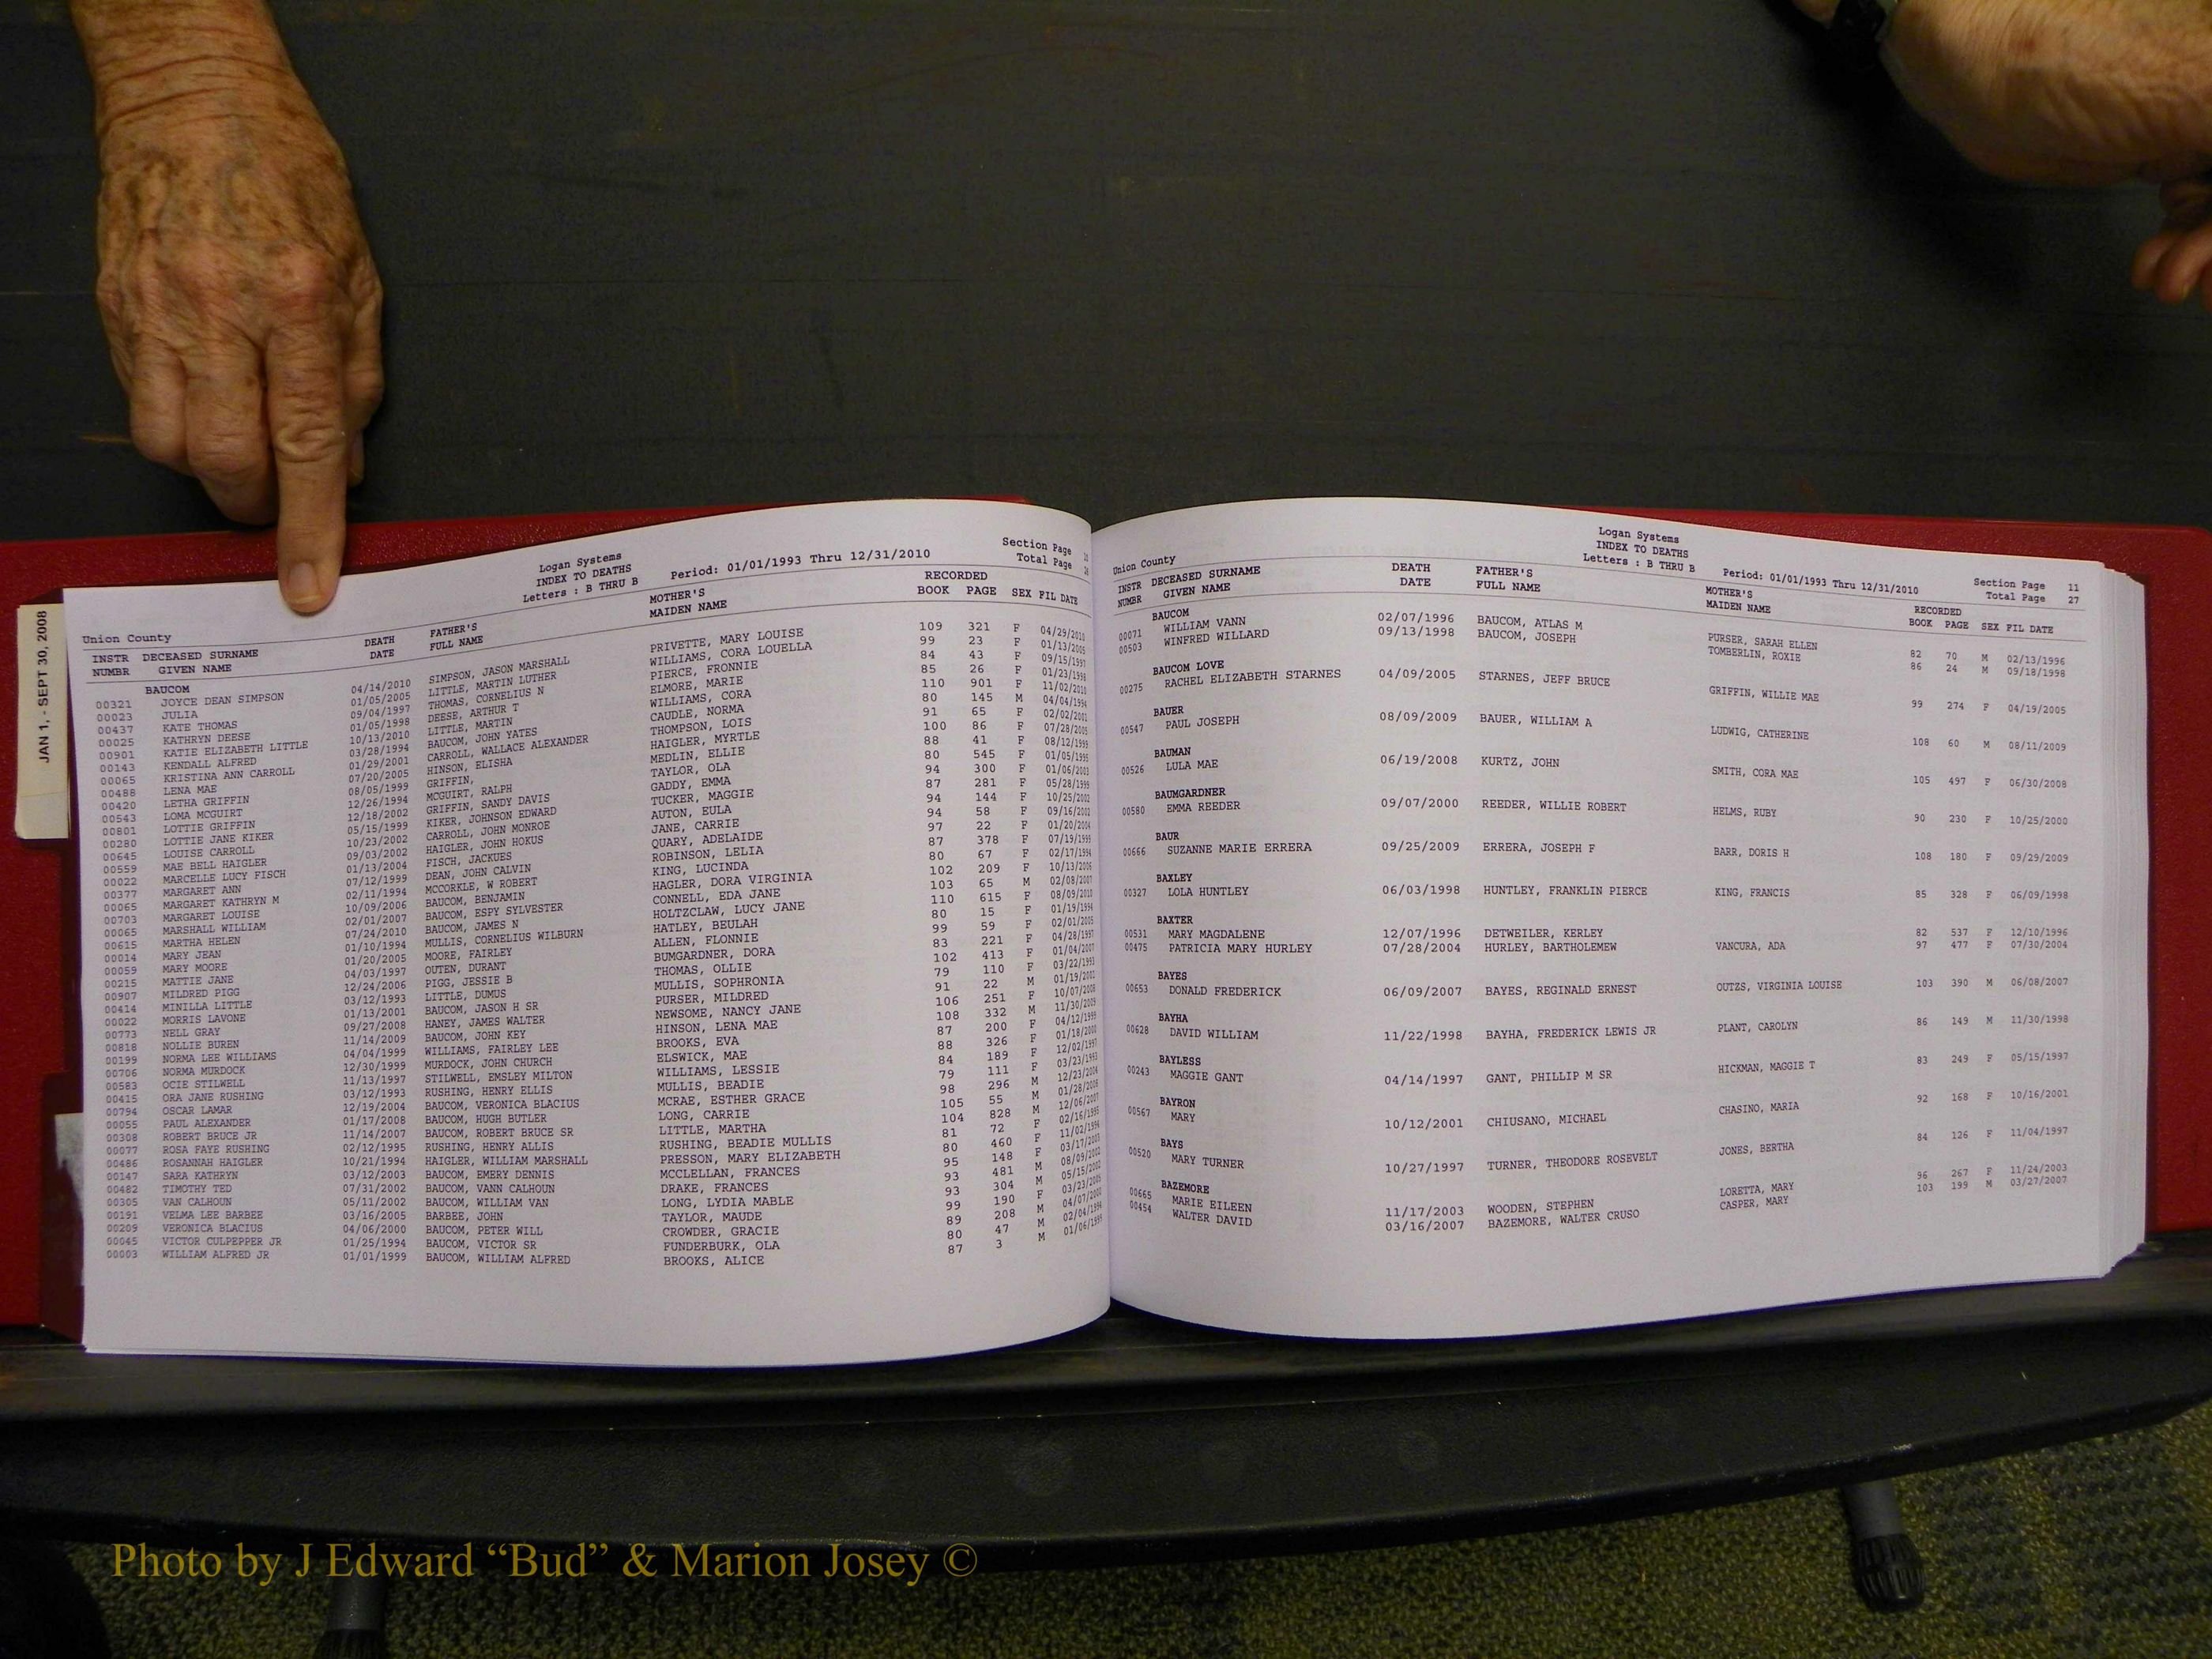 JAN 1, - SEPT 30, 2008
Logan Systems
INDEX TO DEATHS
Letters : B THRU B
Period: 01/01/1993 Thru 12/31/2010
Section Page
Total Page
Union County
INSTR NUMBR DECEASED SURNAME GIVEN NAME DEATH DATE FATHER'S FULL NAME MOTHER'S MAIDEN NAME RECORDED BOOK PAGE SEX FIL DATE
BAUCOM
00321 JOYCE DEAN SIMPSON 04/14/2010 SIMPSON, JASON MARSHALL PRIVETTE, MARY LOUISE 109 321 F 04/29/2010
00023 JULIA 01/05/2005 LITTLE, MARTIN LUTHER WILLIAMS, CORA LOUELLA 99 23 F 01/13/2005
00437 KATE THOMAS 09/04/1997 THOMAS, CORNELIUS N PIERCE, FRONNIE 84 43 F 09/15/1997
00025 KATHRYN DEESE 01/05/1998 DEESE, ARTHUR T ELMORE, MARIE 85 26 F 01/23/1998
00901 KATIE ELIZABETH LITTLE 10/13/2010 LITTLE, MARTIN WILLIAMS, CORA 110 901 F 11/02/2010
00143 KENDALL ALFRED 03/28/1994 BAUCOM, JOHN YATES CAUDLE, NORMA 80 145 M 04/04/1994
00065 KRISTINA ANN CARROLL 01/29/2001 CARROLL, WALLACE ALEXANDER THOMPSON, LOIS 91 65 F 02/02/2001
00488 LENA MAE 07/20/2005 HINSON, ELISHA HAIGLER, MYRTLE 100 86 F 07/28/2005
00420 LETHA GRIFFIN 08/05/1999 GRIFFIN, MEDLIN, ELLIE 88 41 F 08/12/1999
00543 LOMA MCGUIRT 12/26/1994 MCGUIRT, RALPH TAYLOR, OLA 80 545 F 01/05/1995
00801 LOTTIE GRIFFIN 12/18/2002 GRIFFIN, SANDY DAVIS GADDY, EMMA 94 300 F 01/06/2003
00280 LOTTIE JANE KIKER 05/15/1999 KIKER, JOHNSON EDWARD TUCKER, MAGGIE 87 281 F 05/28/1999
00645 LOUISE CARROLL 10/23/2002 CARROLL, JOHN MONROE AUTON, EULA 94 144 F 10/25/2002
00559 MAE BELL HAIGLER 09/03/2002 HAIGLER, JOHN HOKUS JANE, CARRIE 94 58 F 09/16/2002
00022 MARCELLE LUCY FISCH 01/13/2004 FISCH, JACKUES QUARY, ADELAIDE 97 22 F 01/20/2004
00377 MARGARET ANN 07/12/1999 DEAN, JOHN CALVIN ROBINSON, LELIA 87 378 F 07/19/1999
00065 MARGARET KATHRYN M 02/11/1994 MCCORKLE, W ROBERT KING, LUCINDA 80 67 F 02/17/1994
00703 MARGARET LOUISE 10/09/2006 BAUCOM, BENJAMIN HAGLER, DORA VIRGINIA 102 209 F 10/13/2006
00065 MARSHALL WILLIAM 02/01/2007 BAUCOM, ESPY SYLVESTER CONNELL, EDA JANE 103 65 M 02/08/2007
00615 MARTHA HELEN 07/24/2010 BAUCOM, JAMES N HOLTZCLAW, LUCY JANE 110 615 F 08/09/2010
00014 MARY JEAN 01/10/1994 MULLIS, CORNELIUS WILBURN HATLEY, BEULAH 80 15 F 01/19/1994
00059 MARY MOORE 01/20/2005 MOORE, FAIRLEY ALLEN, FLONNIE 99 59 F 02/01/2005
00215 MATTIE JANE 04/03/1997 OUTEN, DURANT BUMGARDNER, DORA 83 221 F 04/28/1997
00907 MILDRED PIGG 12/24/2006 PIGG, JESSIE B THOMAS, OLLIE 102 413 F 01/04/2007
00414 MINILLA LITTLE 03/12/1993 LITTLE, DUMUS MULLIS, SOPHRONIA 79 110 F 03/22/1993
00022 MORRIS LAVONE 01/13/2001 BAUCOM, JASON H SR PURSER, MILDRED 91 22 M 01/19/2001
00773 NELL GRAY 09/27/2008 HANEY, JAMES WALTER NEWSOME, NANCY JANE 106 251 F 10/07/2008
00818 NOLLIE BUREN 11/14/2009 BAUCOM, JOHN KEY HINSON, LENA MAE 108 332 M 11/30/2009
00199 NORMA LEE WILLIAMS 04/04/1999 WILLIAMS, FAIRLEY LEE BROOKS, EVA 87 200 F 04/12/1999
00706 NORMA MURDOCK 12/30/1999 MURDOCK, JOHN CHURCH ELSWICK, MAE 88 326 F 01/18/2000
00583 OCIE STILWELL 11/13/1997 STILWELL, EMSLEY MILTON WILLIAMS, LESSIE 84 189 F 12/02/1997
00415 ORA JANE RUSHING 03/12/1993 RUSHING, HENRY ELLIS MULLIS, BEADIE 79 111 F 03/23/1993
00794 OSCAR LAMAR 12/19/2004 BAUCOM, VERONICA BLACIUS MCRAE, ESTHER GRACE 98 296 M 12/23/2004
00055 PAUL ALEXANDER 01/17/2008 BAUCOM, HUGH BUTLER LONG, CARRIE 105 55 M 01/28/2008
00308 ROBERT BRUCE JR 11/14/2007 BAUCOM, ROBERT BRUCE SR LITTLE, MARTHA 104 828 M 12/06/2007
00077 ROSA FAYE RUSHING 02/12/1995 RUSHING, HENRY ALLIS RUSHING, BEADIE MULLIS 81 72 F 02/16/1995
00486 ROSANNAH HAIGLER 10/21/1994 HAIGLER, WILLIAM MARSHALL PRESSON, MARY ELIZABETH 80 460 F 11/02/1994
00147 SARA KATHRYN 03/12/2003 BAUCOM, EMERY DENNIS MCCLELLAN, FRANCES 95 148 F 03/17/2003
00482 TIMOTHY TED 07/31/2002 BAUCOM, VANN CALHOUN DRAKE, FRANCES 93 481 M 08/09/2002
00305 VAN CALHOUN 05/11/2002 BAUCOM, WILLIAM VAN LONG, LYDIA MABLE 93 304 M 05/15/2002
00191 VELMA LEE BARBEE 03/16/2005 BARBEE, JOHN TAYLOR, MAUDE 99 190 F 03/23/2005
00209 VERONICA BLACIUS 04/06/2000 BAUCOM, PETER WILL CROWDER, GRACIE 89 208 M 04/07/2000
00045 VICTOR CULPEPPER JR 01/25/1994 BAUCOM, VICTOR SR FUNDERBURK, OLA 80 47 M 02/04/1994
00003 WILLIAM ALFRED JR 01/01/1999 BAUCOM, WILLIAM ALFRED BROOKS, ALICE 87 3 M 01/06/1999
Logan Systems
INDEX TO DEATHS
Letters : B THRU B
Period: 01/01/1993 Thru 12/31/2010
Section Page 11
Total Page 27
Union County
INSTR NUMBR DECEASED SURNAME GIVEN NAME DEATH DATE FATHER'S FULL NAME MOTHER'S MAIDEN NAME RECORDED BOOK PAGE SEX FIL DATE
BAUCOM
00071 WILLIAM VANN 02/07/1996 BAUCOM, ATLAS M PURSER, SARAH ELLEN 82 70 M 02/13/1996
00503 WINFRED WILLARD 09/13/1998 BAUCOM, JOSEPH TOMBERLIN, ROXIE 86 24 M 09/18/1998
BAUCOM LOVE
00275 RACHEL ELIZABETH STARNES 04/09/2005 STARNES, JEFF BRUCE GRIFFIN, WILLIE MAE 99 274 F 04/19/2005
BAUER
00547 PAUL JOSEPH 08/09/2009 BAUER, WILLIAM A LUDWIG, CATHERINE 108 60 M 08/11/2009
BAUMAN
00526 LULA MAE 06/19/2008 KURTZ, JOHN SMITH, CORA MAE 105 497 F 06/30/2008
BAUMGARDNER
00580 EMMA REEDER 09/07/2000 REEDER, WILLIE ROBERT HELMS, RUBY 90 230 F 10/25/2000
BAUR
00666 SUZANNE MARIE ERRERA 09/25/2009 ERRERA, JOSEPH F BARR, DORIS H 108 180 F 09/29/2009
BAXLEY
00327 LOLA HUNTLEY 06/03/1998 HUNTLEY, FRANKLIN PIERCE KING, FRANCIS 85 328 F 06/09/1998
BAXTER
00531 MARY MAGDALENE 12/07/1996 DETWEILER, KERLEY 82 537 F 12/10/1996
00475 PATRICIA MARY HURLEY 07/28/2004 HURLEY, BARTHOLEMEW VANCURA, ADA 97 477 F 07/30/2004
BAYES
00653 DONALD FREDERICK 06/09/2007 BAYES, REGINALD ERNEST OUTZS, VIRGINIA LOUISE 103 390 M 06/08/2007
BAYHA
00628 DAVID WILLIAM 11/22/1998 BAYHA, FREDERICK LEWIS JR PLANT, CAROLYN 86 149 M 11/30/1998
BAYLESS
00243 MAGGIE GANT 04/14/1997 GANT, PHILLIP M SR HICKMAN, MAGGIE T 83 249 F 05/15/1997
BAYRON
00567 MARY 10/12/2001 CHIUSANO, MICHAEL CHASINO, MARIA 92 168 F 10/16/2001
BAYS
00520 MARY TURNER 10/27/1997 TURNER, THEODORE ROSEVELT JONES, BERTHA 84 126 F 11/04/1997
BAZEMORE
00665 MARIE EILEEN 11/17/2003 WOODEN, STEPHEN LORETTA, MARY 96 267 F 11/24/2003
00454 WALTER DAVID 03/16/2007 BAZEMORE, WALTER CRUSO CASPER, MARY 103 199 M 03/27/2007
Photo by J Edward “Bud” & Marion Josey ©